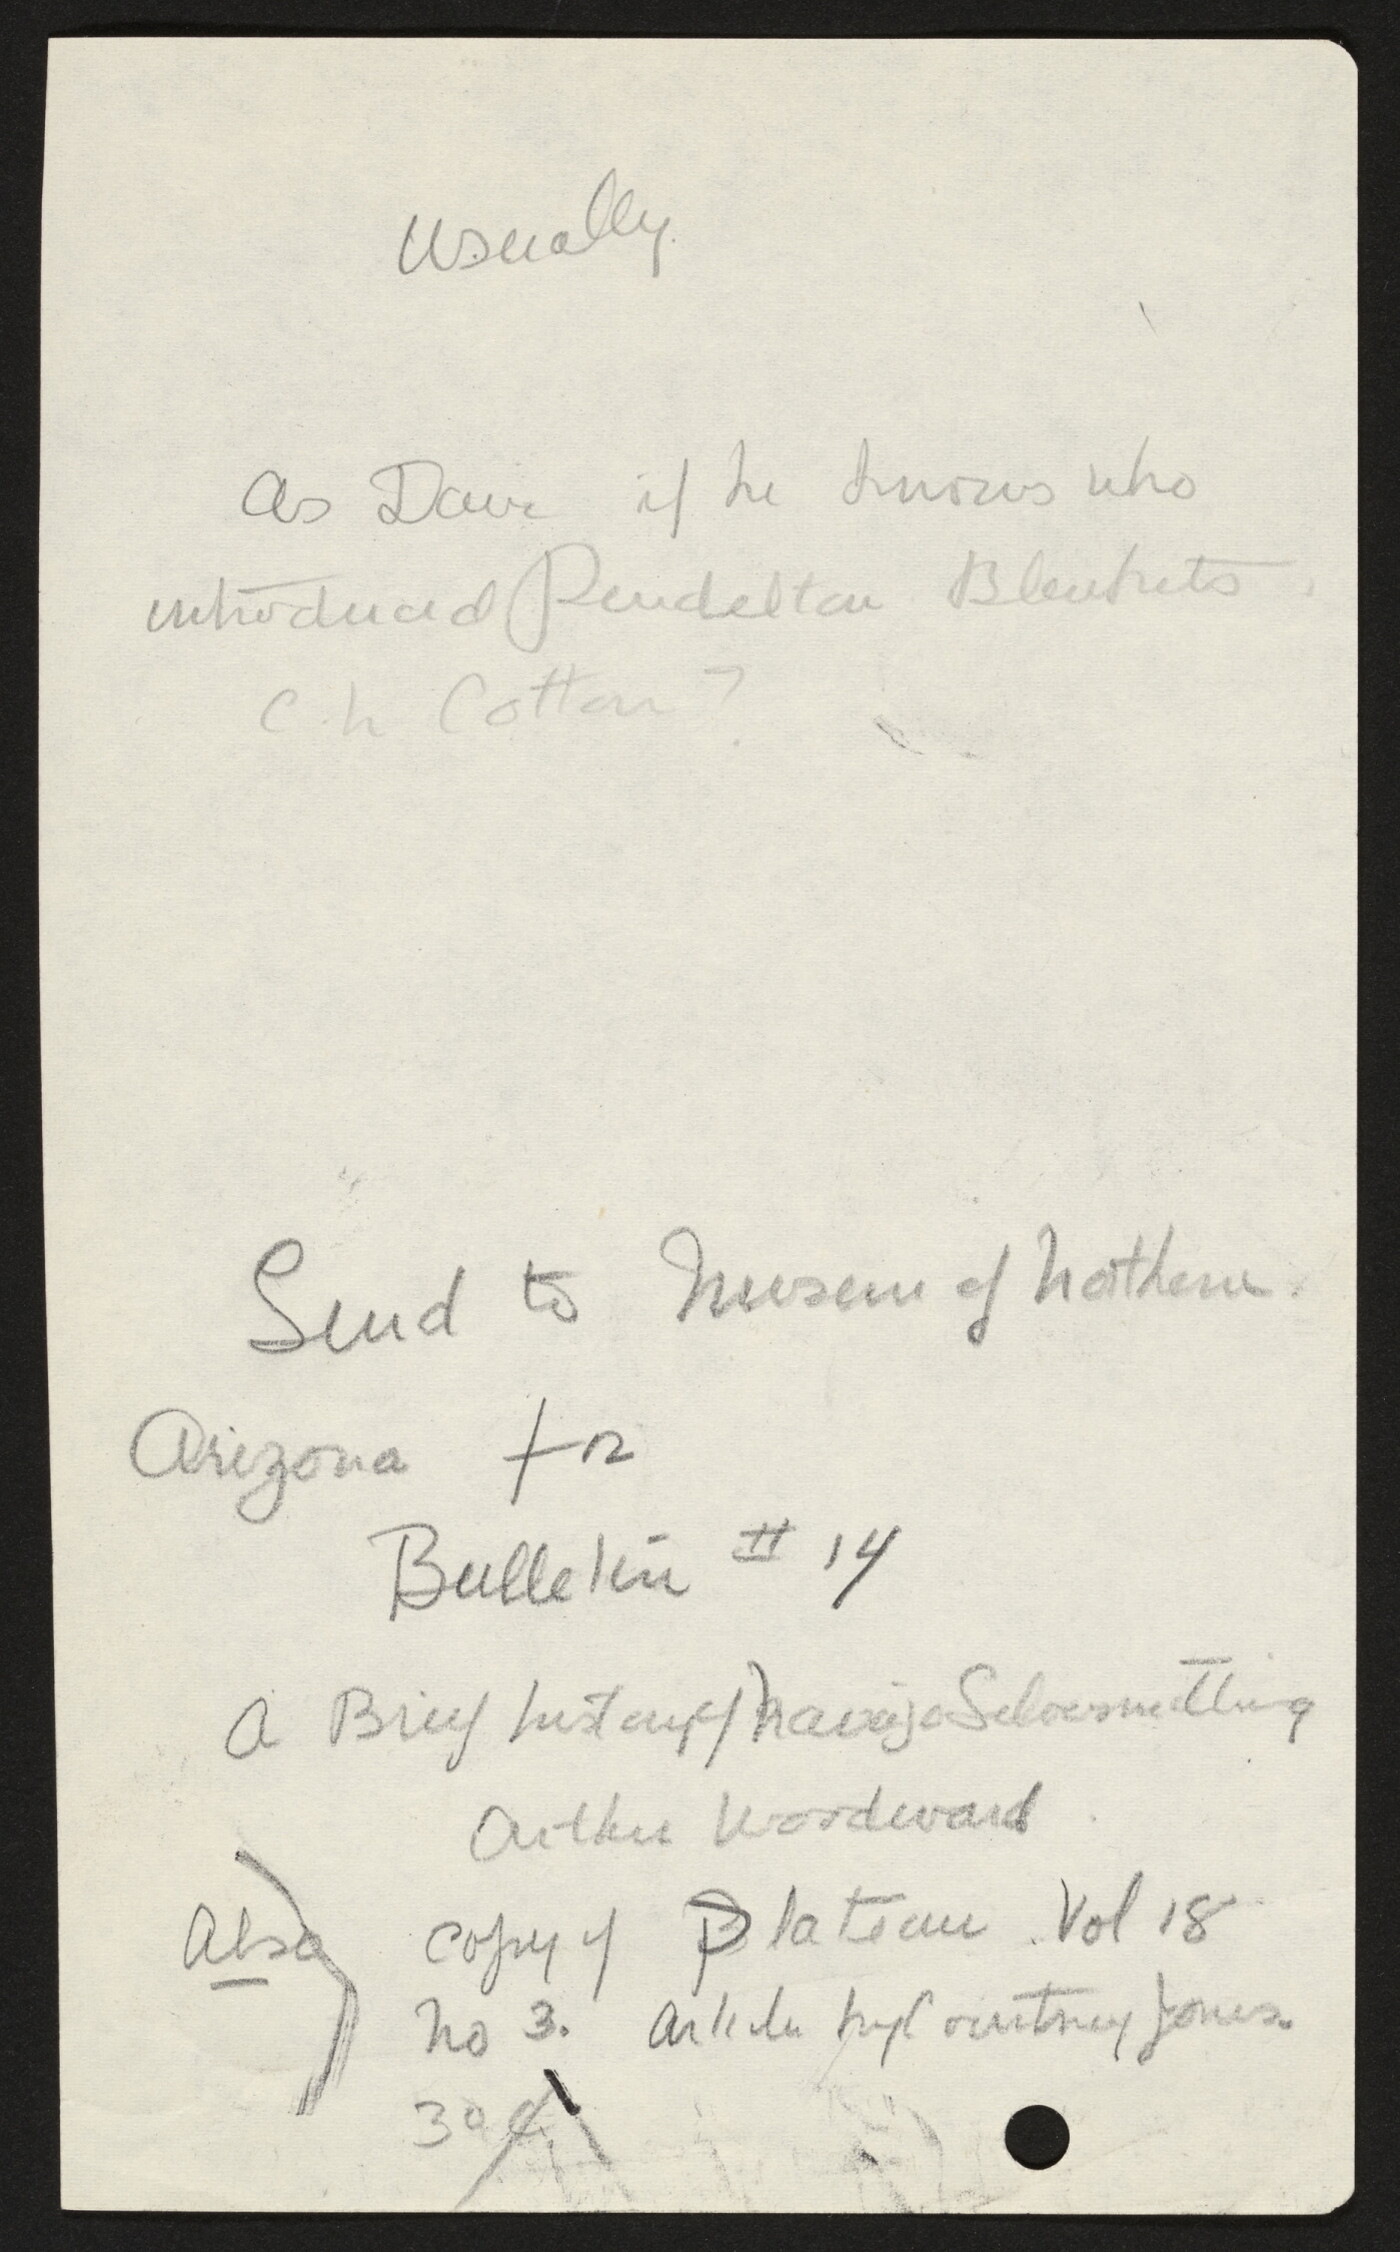 Usually.
As Dave if he knows who
introduced Pendelton Blankets.
C. h Cotton?
Send to Museum of Northern
Arizona for
Bulletin # 14
A Brief history of Navajo Silversmithing
Arthur Woodward
Also copy of Plateau Vol 18
No 3. Article by Courtney Jones.
30¢